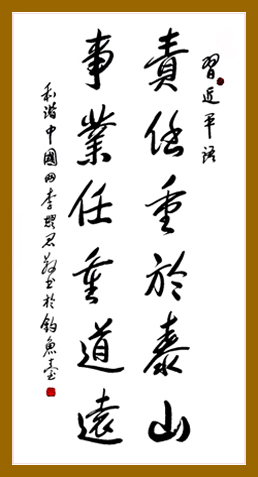 習近平語
責任重於泰山
事業任重道遠
和諧中國網李 君敬书於釣魚臺